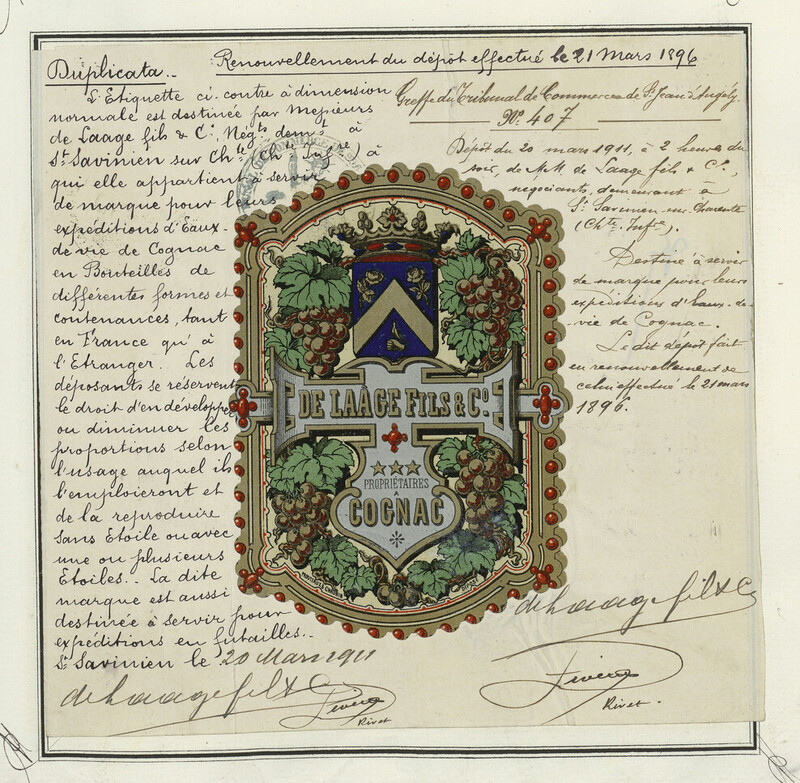 Duplicata..
Renouvellement du dépôt effectué le 21 Mars 1896
L'Etiquette ci-contre à dimension
normale est destinée par Messieurs
de Laage fils & Cº, Négts demt à
St Savinien sur Chte (Chte Infre) à
qui elle appartient à servir
de marque pour leurs
expéditions d'Eaux-
de-vie de Cognac
en Bouteilles de
différentes formes et
contenances, tant
en France qu'à
l'Etranger. Les
déposants se réservent
le droit d'en développer
ou diminuer les
proportions selon
l'usage auquel ils
l'emploieront et
de la reproduire
sans Etoile ou avec
une ou plusieurs
Etoiles.. La dite
marque est aussi
destinée à servir pour
expéditions en futailles..
St Savinien le 20 Mars 1911
de Laage fils & Cº
Rivet
Greffe du Tribunal de Commerce de St Jean d'Angély
Nº 407
Dépôt du 20 mars 1911, à 2 heures du
soir, de M.M. de Laage fils & Cº,
négociants, demeurant à
St Savinien sur Charente
(Chte Infre).
Destiné à servir
de marque pour leurs
expéditions d'Eaux-de-
vie de Cognac.
Le dit dépôt fait
en renouvellement de
celui effectué le 21 mars
1896.
de Laage fils & Cº
Rivet.
DE LAÂGE FILS & Cº
PROPRIÉTAIRES
A
COGNAC